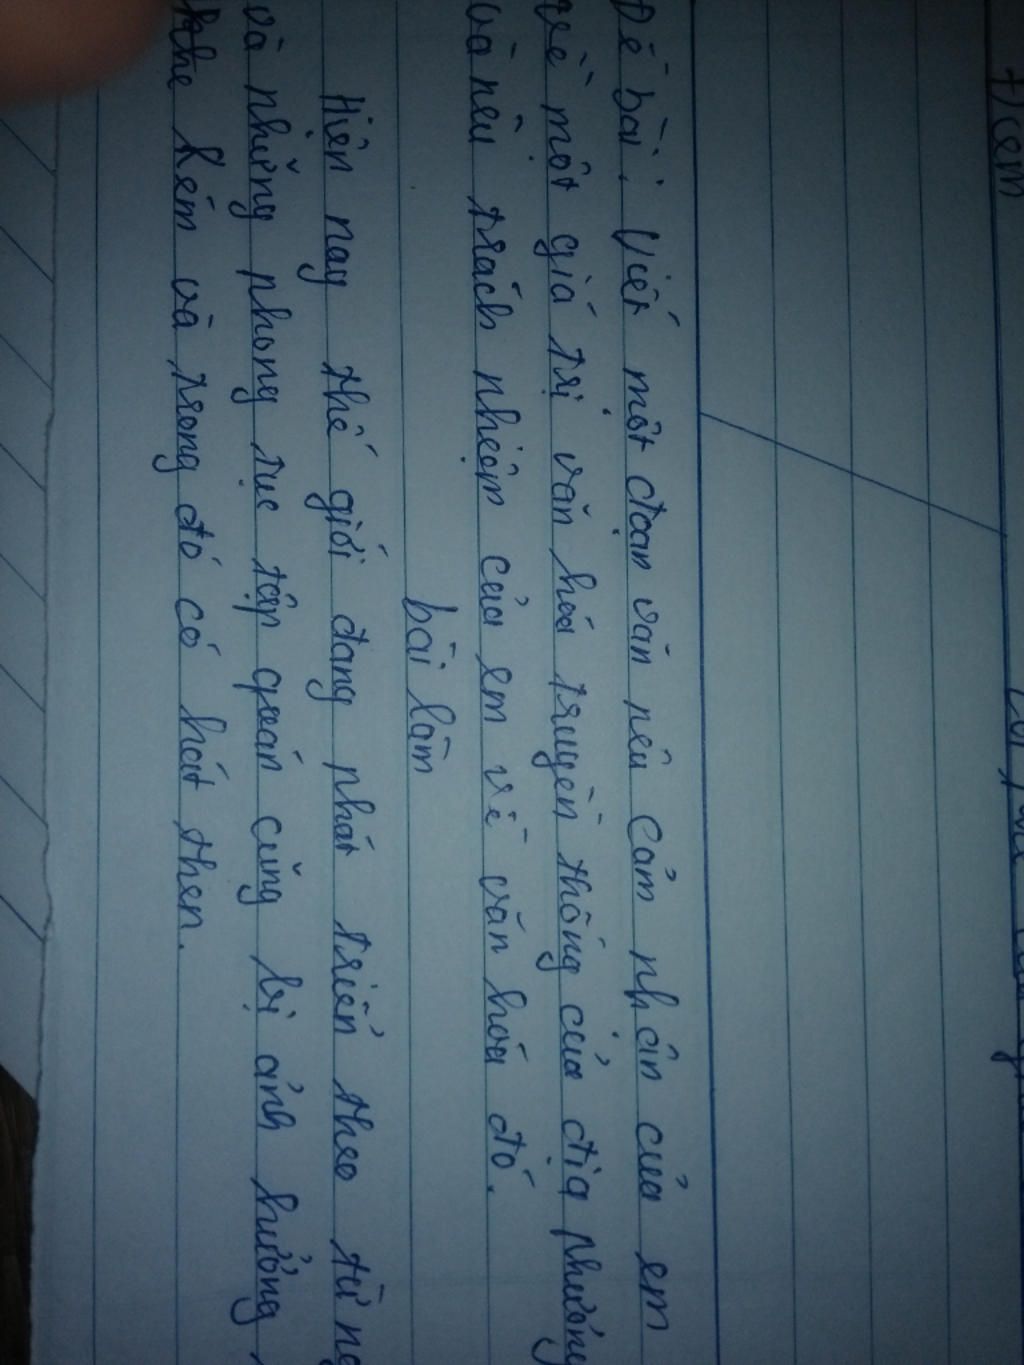 Điểm
Đề bài: Viết một đoạn văn nêu cảm nhận của em
về một giá trị văn hóa truyền thống của địa phương
và nêu trách nhiệm của em về văn hoá đó.
bài làm
Hiện nay thế giới đang phát triển theo từ
và những phong tục tập quán cũng bị ảnh hưởng
kém và trong đó có hát then.